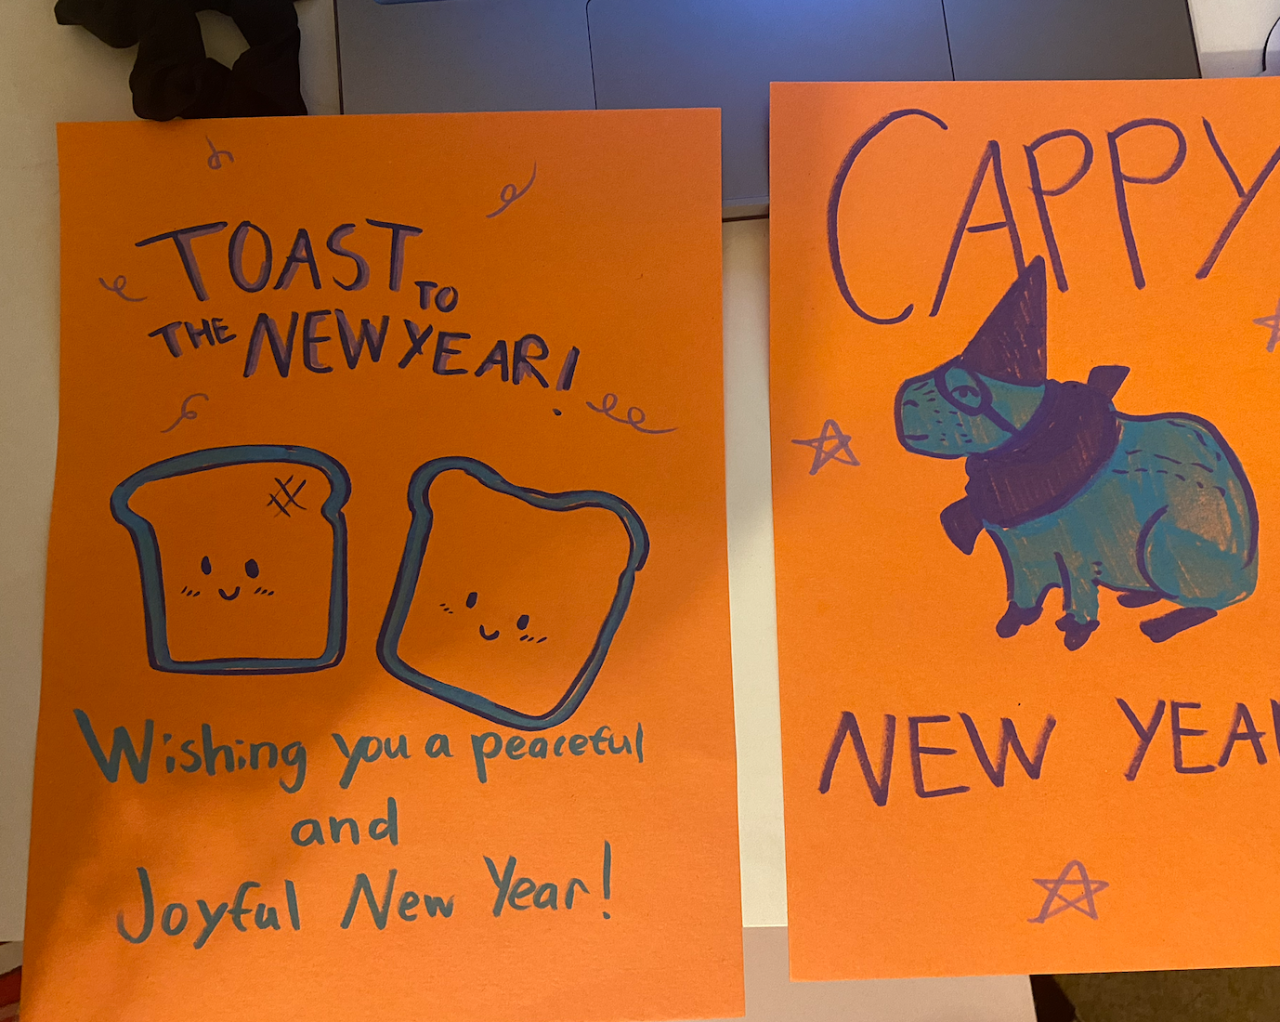 TOAST TO
THE NEW YEAR!
Wishing you a peaceful
and
Joyful New Year!
CAPPY
NEW YEA